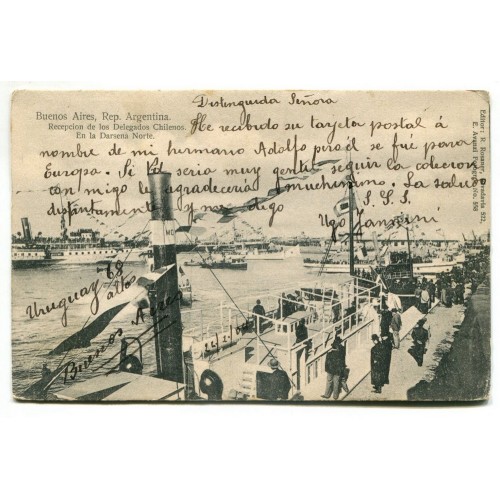 Buenos Aires, Rep. Argentina.
Recepcion de los Delegados Chilenos.
En la Darsena Norte.
Distinguida Señora
He recibido su tarjeta postal á
nombre de mi hermano Adolfo pero él se fué para
Europa. Si Ud. seria muy gentil seguir la colecion
con migo le agradeceria muchisimo. La saludo
distantamente y me digo S. S. S.
Ugo
Uruguay 68
altos
Buenos Aires
Editor: R. Rosauer, Rivadavia 571,